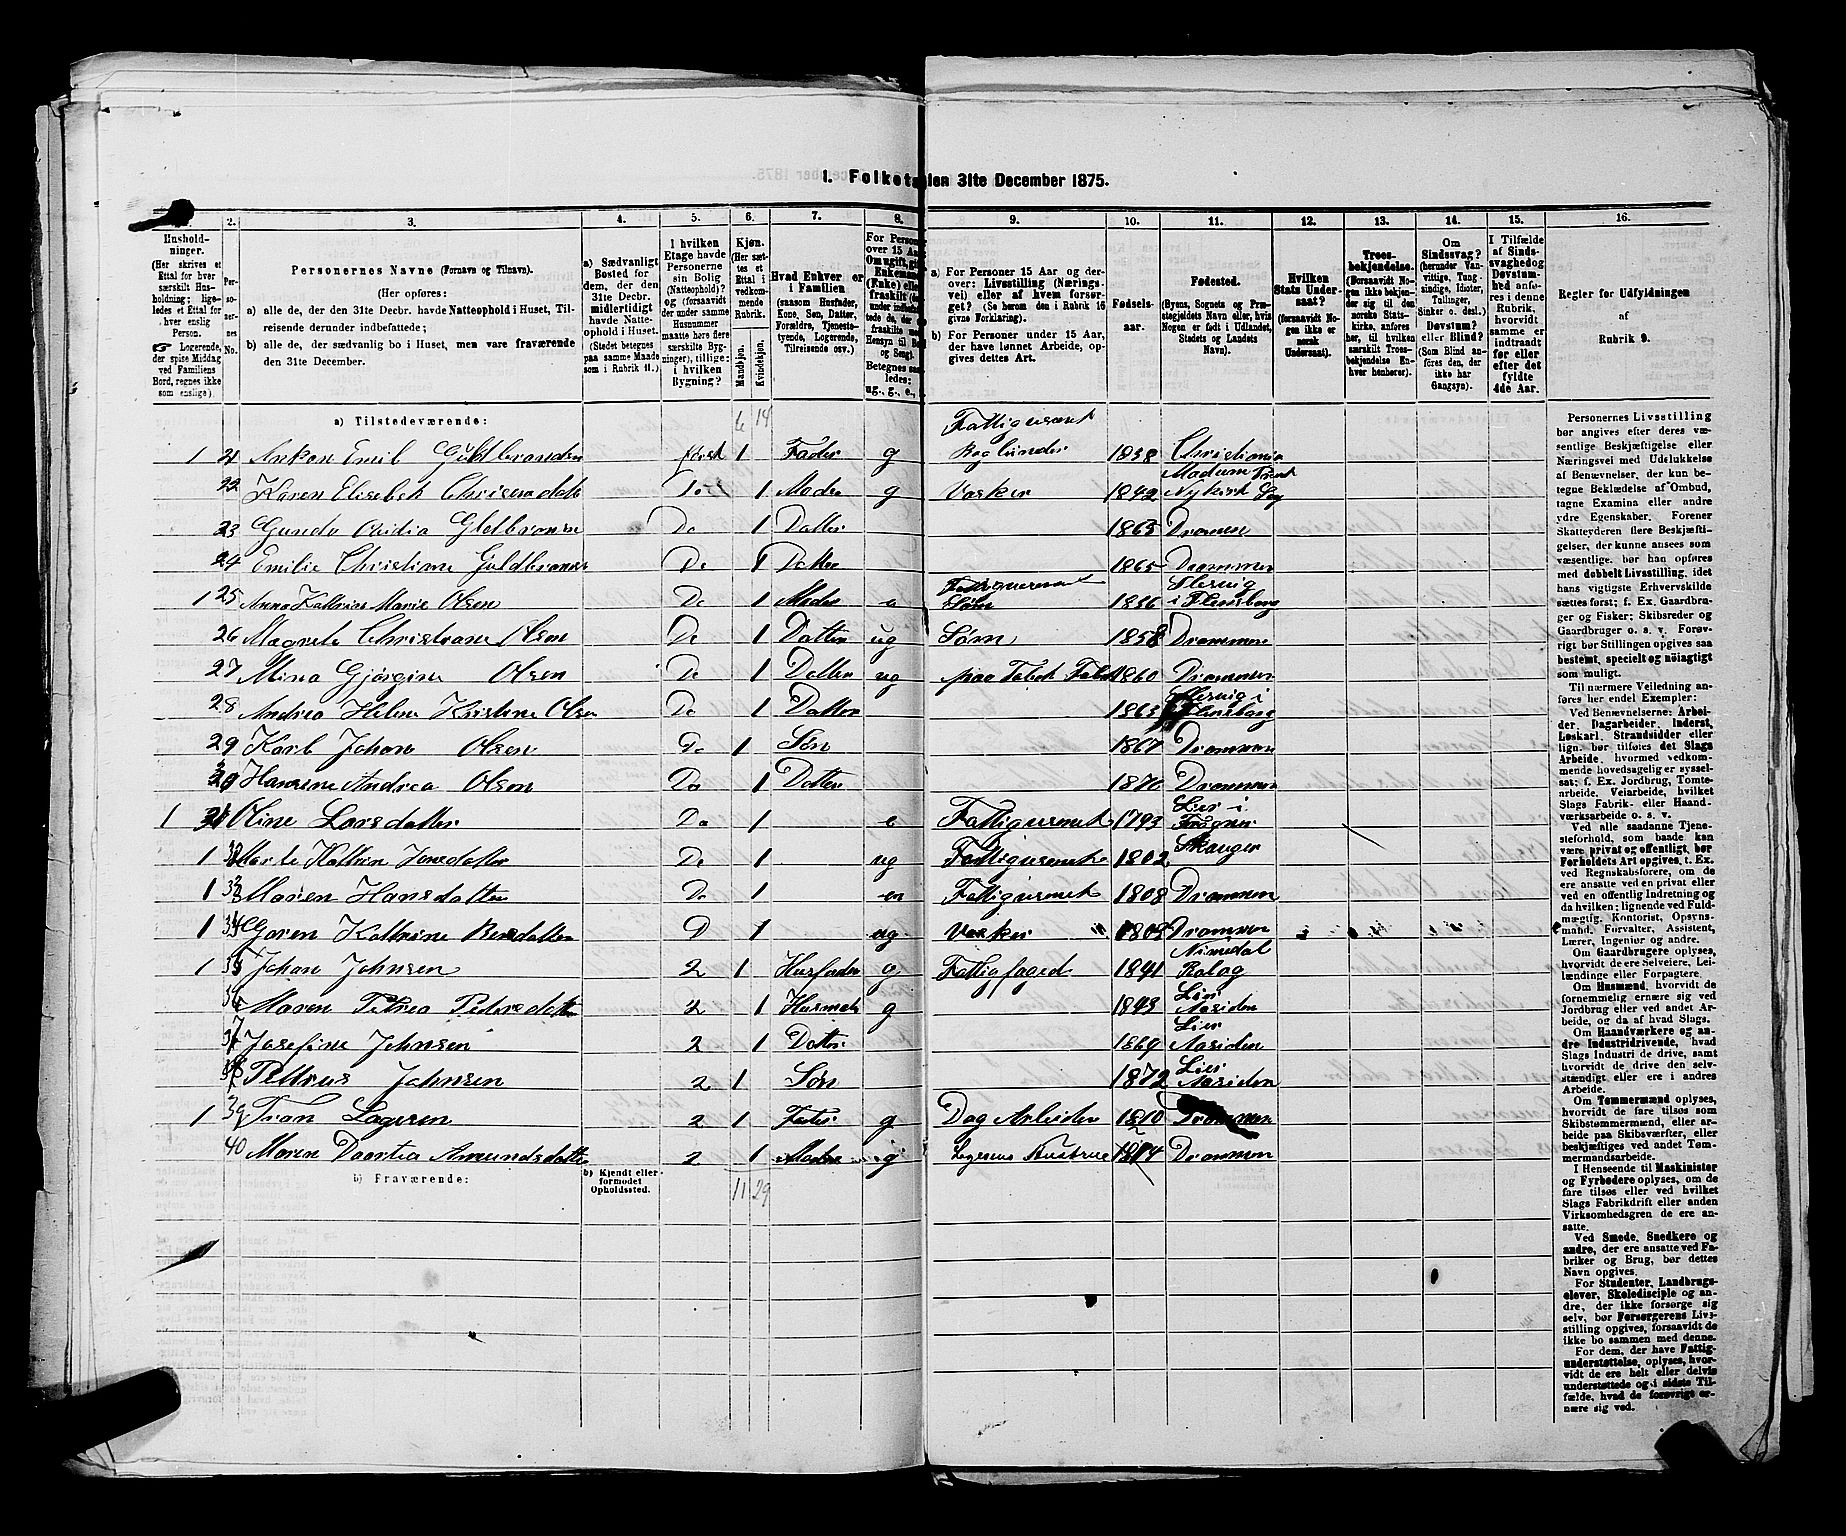 1. Folketællen 31te December 1875.
1. 2. 3. 4. 5. 6. 7. 8. 9. 10. 11. 12. 13. 14. 15. 16.
Husholdninger. (Her skrives et Ettal for hver særskilt Husholdning; ligeledes et Ettal for hver enslig Person. ☞ Logerende, der spise Middag ved Familiens Bord, regnes ikke som enslige).
Personernes No.
Personernes Navne (Fornavn og Tilnavn).
(Her opføres:
a) alle de, der den 31te Decbr. havde Natteophold i Huset, Tilreisende derunder indbefattede;
b) alle de, der sædvanlig bo i Huset, men vare fraværende den 31te December.
a) Sædvanligt Bosted for dem, der den 31te Decbr. midlertidigt havde Natteophold i Huset. (Stedet betegnes paa samme Maade som i Rubrik 11.)
I hvilken Etage havde Personerne sin Bolig (Natteophold)? og (forsaavidt der under samme Husnummer maatte høre flere særskilte Bygninger), tillige: i hvilken Bygning?
Kjøn. (Her sættes et Ettal i vedkommende Rubrik.
Mandkjøn. Kvindekjøn.
Hvad Enhver er i Familien (saasom Husfader, Kone, Søn, Datter, Forældre, Tjenestetyende, Logerende, Tilreisende osv.)
For Personer over 15 Aar
Betegnes saaledes: ug., g., e.,
a) For Personer 15 Aar og derover: Livsstilling (Næringsvei) eller af hvem forsørget? (Se herom den i Rubrik 16 givne Forklaring).
b) For Personer under 15 Aar, der have lønnet Arbeide, opgives dettes Art.
Fødselsaar.
Fødested. (Byens, Sognets og Præstegjeldets Navn eller, hvis Nogen er født i Udlandet, Stedets og Landets Navn).
Hvilken Stats Undersaat? (forsaavidt Nogen ikke er norsk Undersaat).
Troesbekjendelse. (Forsaavidt Nogen ikke bekjender sig til den norske Statskirke, anføres her, til hvilken særskilt Troesbekjendelse Enhver henhører).
Om Sindssvag? (herunder Vanvittige, Tungsindige, Idioter, Tullinger, Sinker o. desl.) Døvstum? eller Blind? (Som Blind anføres den, der ikke har Gangsyn).
I Tilfælde af Sindssvaghed og Døvstumhed anføres i denne Rubrik, hvorvidt samme er indtraadt før eller efter det fyldte 4de Aar.
Regler for Udfyldningen af Rubrik 9.
a) Tilstedeværende: 6 14
Fattigunderst
1 21 Anton Emil Guldbrandsen først 1 Fader g Bogbinder 1838 Christiania
22 Karen Elisabet Christensdatte Do 1 Moder g Vasker 1842 Modum Nykirk
23 Gunda Guldbransen Do 1 Datter 1863 Drammen
24 Emilie Christiane Guldbransen Do 1 Datter 1865 Drammen
1 25 Anna Kathrine Marie Olsen Do 1 Moder e 1836 i Flensborg
26 Magrete Christiane Olsen Do 1 Datter ug Søm 1858 Drammen
27 Mina Gjørgine Olsen Do 1 Datter ug paa Tobak Fab 1860 Drammen
28 Andrea Helene Kristine Olsen Do 1 Datter 1863 Slesvig i Flensborg
29 Karl Johan Olsen Do 1 Søn 1867 Drammen
30 Hansine Andrea Olsen Do 1 Datter 1870 Drammen
1 31 Oline Larsdatter Do 1 e Fattigunderst 1793 Lier i Frogner
1 32 Marte Katrin Jensdatter Do 1 ug Fattigunderst 1802 Skauger
1 33 Maren Hansdatter Do 1 en Fattigunderst 1808 Drammen
1 34 Goren Kathrine Bensdatter D 1 ug Vasker 1809 Drammen
1 35 Johan Johnsen 2 1 Husfader g Fattigfoged 1841 Numedal Rolag
36 Maren Petrea Pedersdatter 2 1 Husmoder g 1843 Lier Aasiden
37 Josefine Johnsen 2 1 Datter 1869 Lier Aasiden
38 Pettrus Johnsen 2 1 Søn 1872 Lier Aasiden
1 39 Fran Lagesen 2 1 Fader g Dag Arbeider 1810 Drammen
40 Maren Doortea Amundsdatter 2 1 Moder g Lagesens Hustrue 1814 Drammen
b) Fraværende: b) Kjendt eller formodet Opholdssted. 11 29
Personernes Livsstilling bør angives efter deres væsentlige Beskjæftigelse eller Næringsvei med Udelukkelse af Benævnelser, der kun betegne Beklædelse af Ombud, tagne Examina eller andre ydre Egenskaber. Forener Skatteyderen flere Beskjæftigelser, der kunne ansees som væsentlige, bør han opføres med dobbelt Livsstilling, idet hans vigtigste Erhvervskilde sættes først; f. Ex. Gaardbruger og Fisker; Skibsreder og Gaardbruger o. s. v. Forøvrigt bør Stillingen opgives saa bestemt, specielt og nöiagtigt som muligt.
Til nærmere Veiledning anføres her endel Exempler:
Ved Benævnelserne: Arbeider, Dagarbeider, Inderst, Løskarl, Strandsidder eller lign. bør tilføies det Slags Arbeide, hvormed vedkommende hovedsagelig er sysselsat; f. Ex. Jordbrug, Tomtearbeide, Veiarbeide, hvilket Slags Fabrik- eller Haandværksarbeide o. s. v.
Ved alle saadanne Tjenesteforhold, som baade kan være privat og offentligt, bør Forholdets Art opgives, t. Ex. ved Regnskabsførere, om de ere ansatte ved en privat eller ved en offentlig Indretning og da hvilken; lignende ved Fuldmægtig, Kontorist, Opsynsmand, Forvalter, Assistent, Lærer, Ingeniør og andre.
Om Gaardbrugere oplyses, hvorvidt de ere Selveiere, Leilændinge eller Forpagtere.
Om Husmænd, hvorvidt de fornemmelig ernære sig ved Jordbrug eller ved andet Arbeide, og da af hvad Slags.
Om Haandværkere og andre Industridrivende, hvad Slags Industri de drive, samt hvorvidt de drive den selvstændigt eller ere i andres Arbeide.
Om Tømmermænd oplyses, hvorvidt de fare tilsøs som Skibstømmermænd, eller arbeide paa Skibsværfter, eller beskjæftiges ved andet Tømmermandsarbeide.
I Henseende til Maskinister og Fyrbødere oplyses, om de fare tilsøs eller ved hvilket Slags Fabrikdrift eller anden Virksomhedsgren de ere ansatte.
Ved Smede, Snedkere og andre, der ere ansatte ved Fabriker og Brug, bør dettes Navn opgives.
For Studenter, Landbrugselever, Skoledisciple og andre, der ikke forsørge sig selv, bør Forsørgerens Livsstilling opgives, forsaavidt de ikke bo sammen med denne.
For dem, der have Fattigunderstøttelse, oplyses, hvorvidt de ere helt eller delvis understøttede og i sidste Tilfælde, hvad de forøvrigt ernære sig ved.